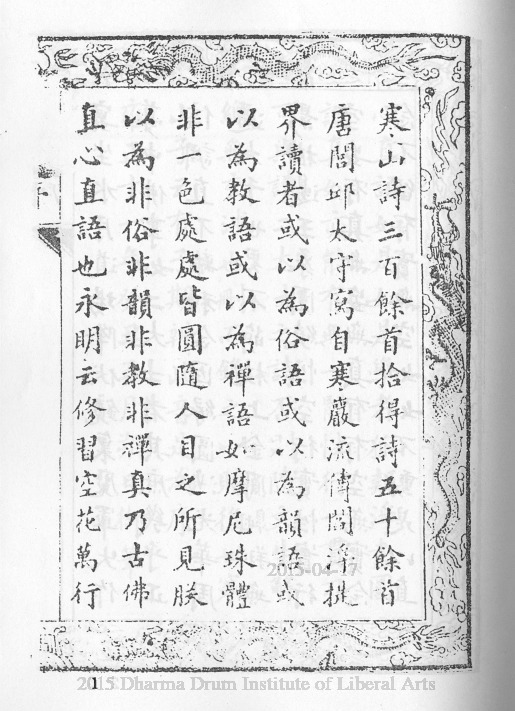 寒山詩三百餘首拾得詩五十餘首
唐閭邱太守寫自寒巖流傳閻浮提
界讀者或以為俗語或以為韻語或
以為教語或以為禪語如摩尼珠體
非一色處處皆圓隨人目之所見朕
以為非俗非韻非教非禪真乃古佛
直心直語也永明云修習空花萬行
序
2015-04-17
1
2015 Dharma Drum Institute of Liberal Arts